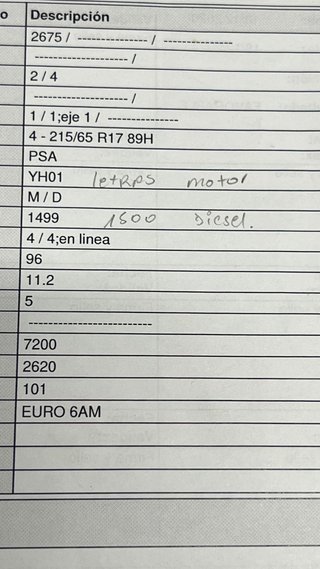 o Descripción
2675 / -------------- / --------------
------------------- /
2 / 4
------------------- /
1 / 1;eje 1 / --------------
4 - 215/65 R17 89H
PSA
YH01 letras motor
M / D
1499 1500 Diesel.
4 / 4;en linea
96
11.2
5
-------------------------
7200
2620
101
EURO 6AM